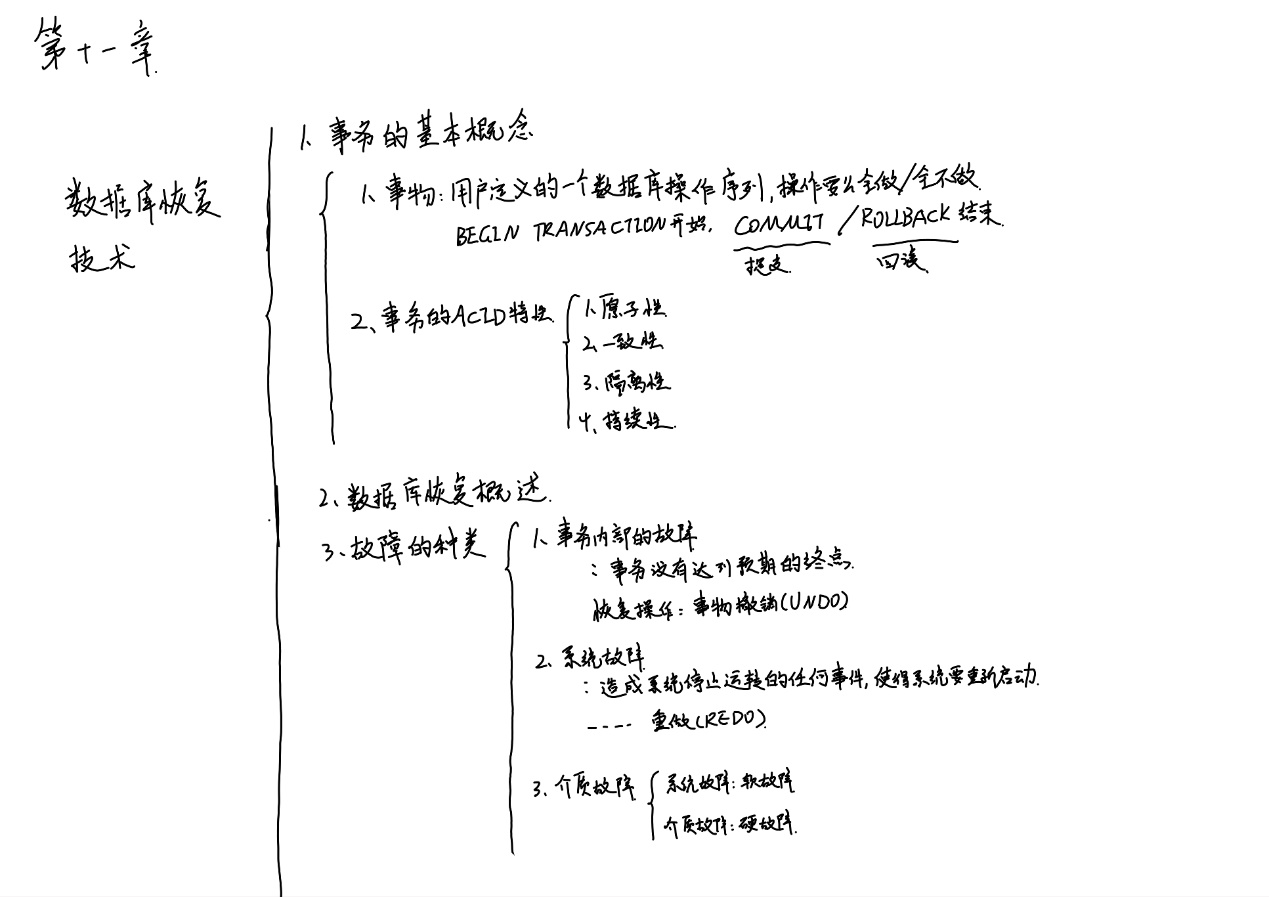 第十一章.
数据库恢复
技术
1、事务的基本概念
1、事物:用户定义的一个数据库操作序列,操作要么全做/全不做.
BEGIN TRANSACTION开始. COMMIT /ROLLBACK 结束.
提交. 回滚.
2、事务的ACID特性.
1.原子性
2.一致性
3.隔离性
4、持续性.
2、数据库恢复概述.
3、故障的种类
1、事务内部的故障
:事务没有达到预期的终点.
恢复操作:事物撤销(UNDO)
2、系统故障.
:造成系统停止运转的任何事件,使得系统要重新启动.
---- 重做(REDO).
3、介质故障
系统故障:软故障
介质故障:硬故障.